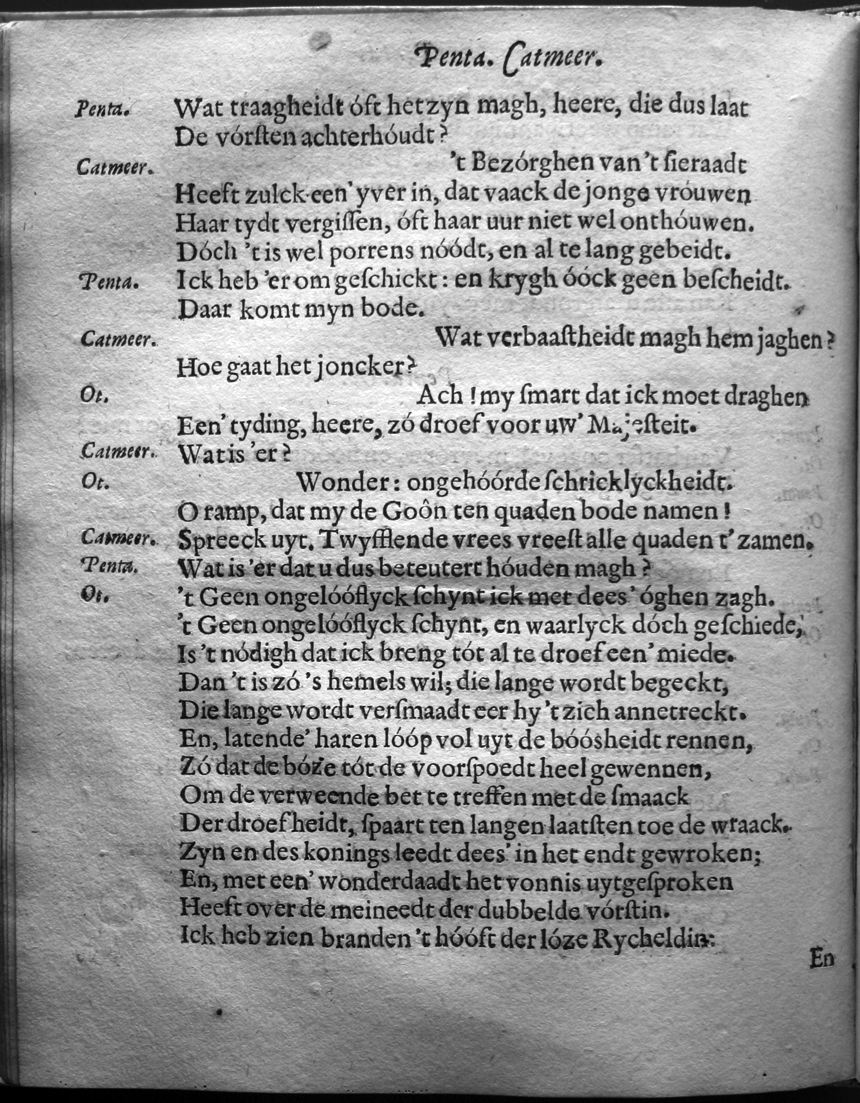 Penta. Catmeer.
Penta. Wat traagheidt óft het zyn magh, heere, die dus laat
De vórſten achterhóudt?
Catmeer. 't Bezórghen van 't ſieraadt
Heeft zulck een' yver in, dat vaack de jonge vróuwen
Haar tydt vergiſſen, óft haar uur niet wel onthóuwen.
Dóch 't is wel porrens nóódt, en al te lang gebeidt.
Penta. Ick heb 'er om geſchickt: en krygh óóck geen beſcheidt.
Daar komt myn bode.
Catmeer. Wat verbaaſtheidt magh hem jaghen?
Hoe gaat het joncker?
Ot. Ach! my ſmart dat ick moet draghen
Een' tyding, heere, zó droef voor uw' Majeſteit.
Catmeer. Wat is 'er?
Ot. Wonder: ongehóórde ſchricklyckheidt.
O ramp, dat my de Goôn ten quaden bode namen!
Catmeer. Spreeck uyt. Twyfflende vrees vreeſt alle quaden t' zamen.
Penta. Wat is 'er dat u dus beteutert hóuden magh?
Ot. 't Geen ongelóóflyck ſchynt ick met dees' óghen zagh.
't Geen ongelóóflyck ſchynt, en waarlyck dóch geſchiede,
Is 't nódigh dat ick breng tót al te droef een' miede.
Dan 't is zó 's hemels wil; die lange wordt begeckt,
Die lange wordt verſmaadt eer hy 't zich annetreckt.
En, latende' haren lóóp vol uyt de bóósheidt rennen,
Zó dat de bóze tót de voorſpoedt heel gewennen,
Om de verweende bet te treffen met de ſmaack
Der droefheidt, ſpaart ten langen laatſten toe de wraack.
Zyn en des konings leedt dees' in het endt gewroken;
En, met een' wonderdaadt het vonnis uytgeſproken
Heeft over de meineedt der dubbelde vórſtin.
Ick heb zien branden 't hóóft der lóze Rycheldin:
En